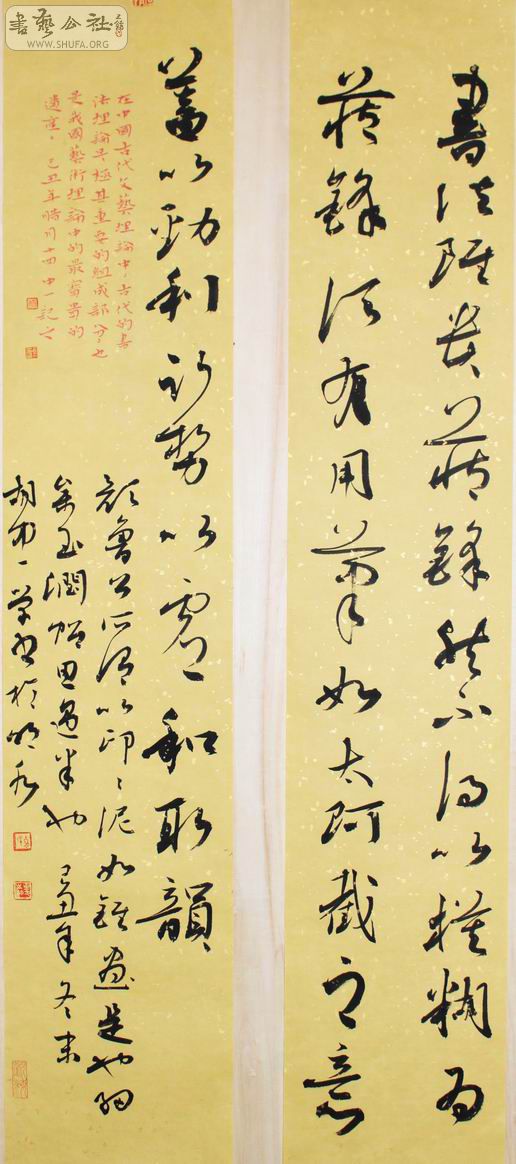 書法雖貴藏鋒然不得以模糊為
藏鋒須有用筆如太阿截之意
蓋以勁利取勢以虛和取韻
顏魯公所謂以印印泥如錐畫是也細
參玉潤帖思過半也 己丑年冬末
胡中一學書於
在中國古代文藝理論中,古代的書
法理論是極其重要的組成部分,也
是我國藝術理論中的最寶貴的
遺產。己丑年臘月十四 中一記之
書藝公社
WWW.SHUFA.ORG